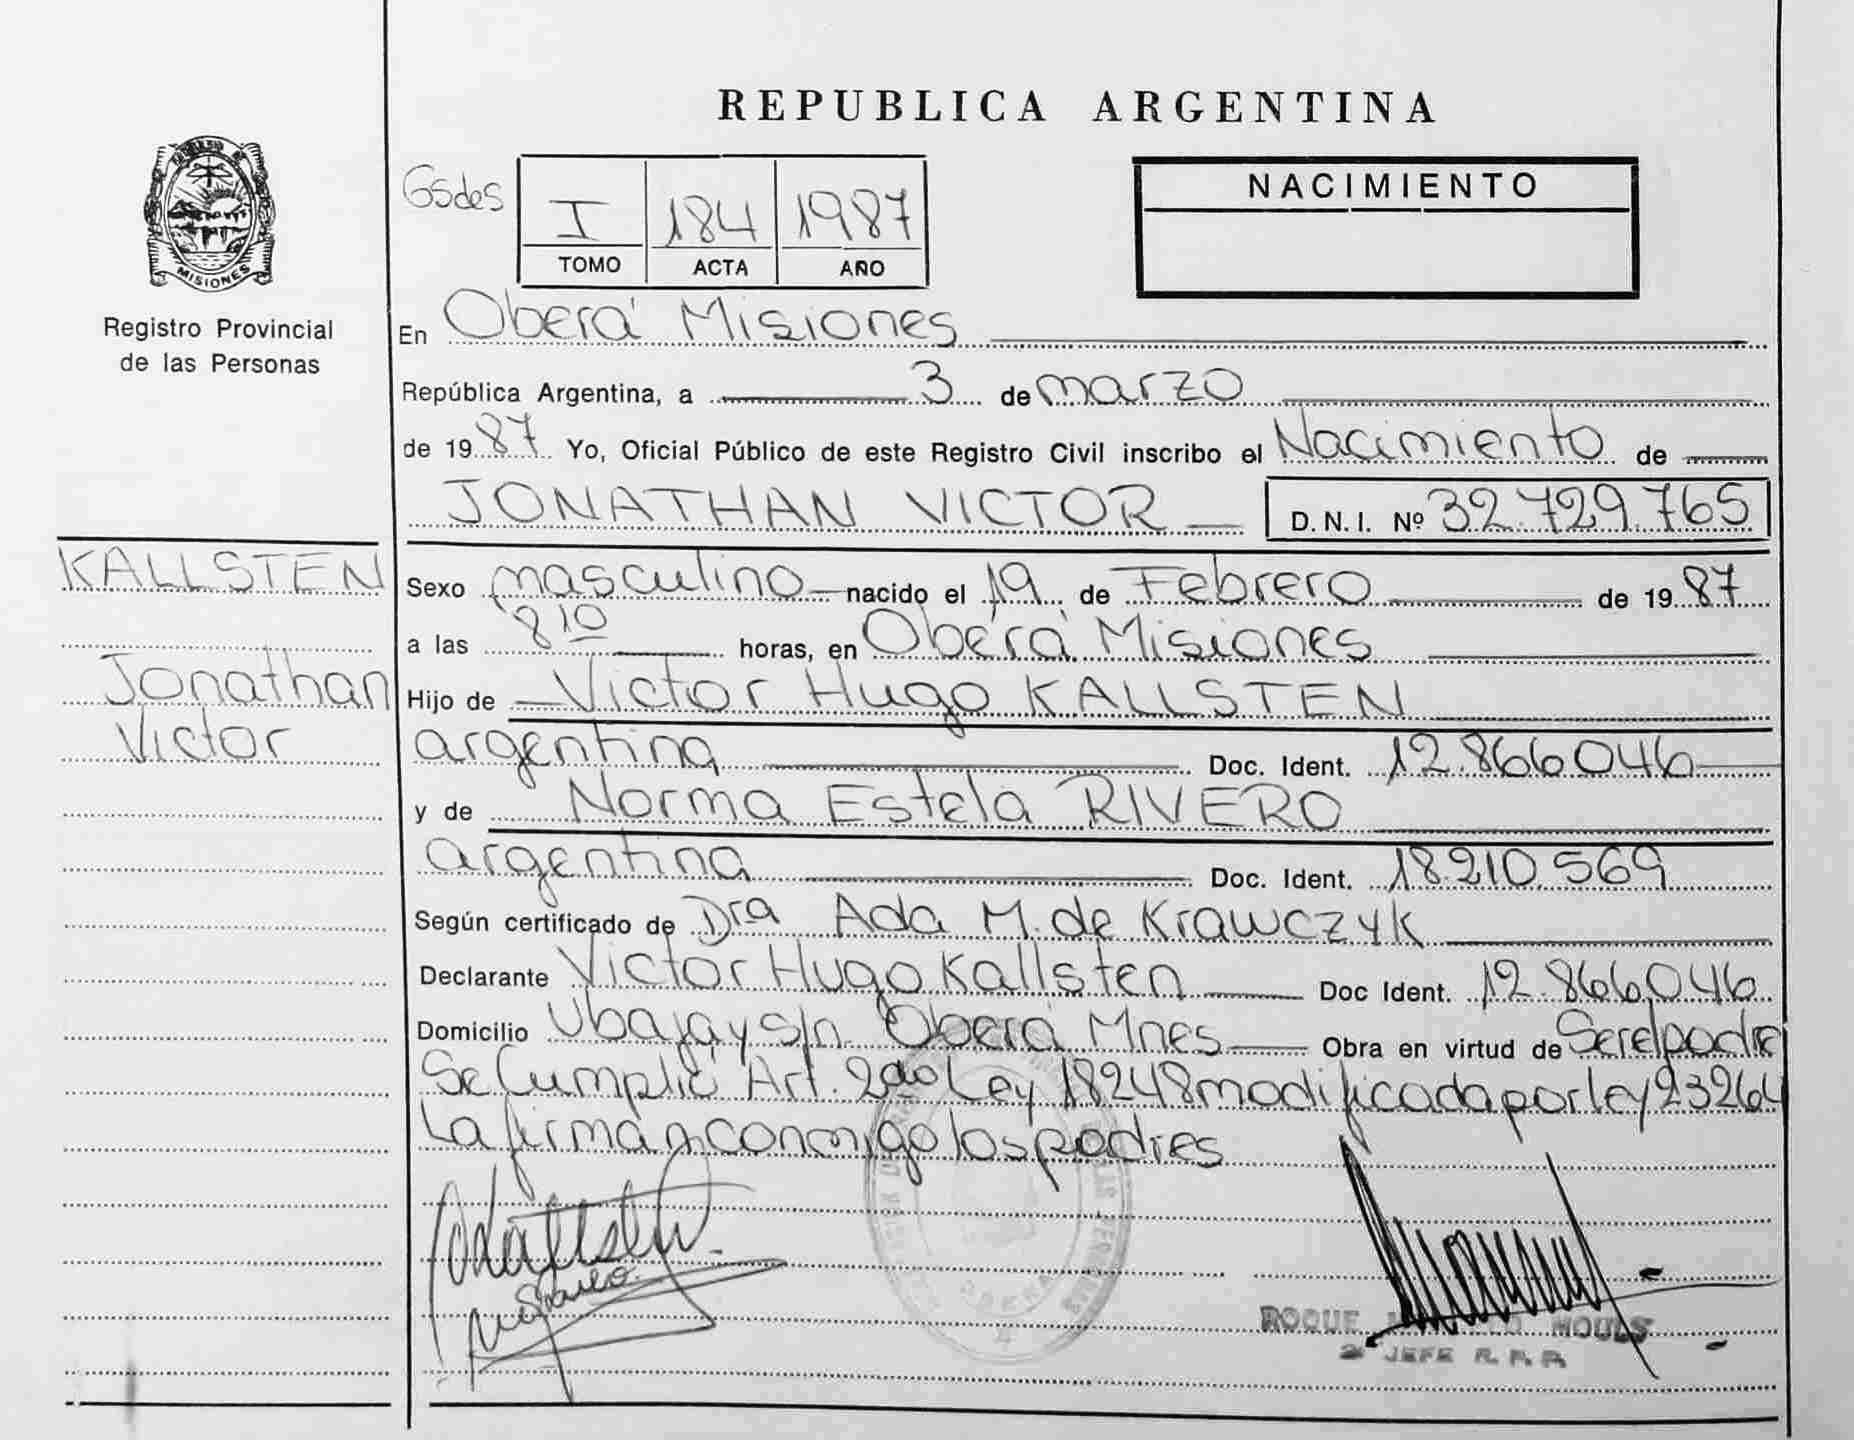 REPUBLICA ARGENTINA
MISIONES
Registro Provincial
de las Personas
Gsdes
I 184 1987
TOMO ACTA AÑO
NACIMIENTO
En Oberá Misiones
República Argentina, a 3 de marzo
de 1987 Yo, Oficial Público de este Registro Civil inscribo el Nacimiento de
JONATHAN VICTOR D.N.I. Nº 32.729.765
KALLSTEN
Jonathan
Victor
Sexo masculino nacido el 19 de Febrero de 1987
a las 8 10 horas, en Oberá Misiones
Hijo de Victor Hugo KALLSTEN
argentina Doc. Ident. 12.866046
y de Norma Estela RIVERO
argentina Doc. Ident. 18.210.569
Según certificado de Dra Ada M. de Krawczyk
Declarante Victor Hugo Kallsten Doc Ident. 12.866.046
Domicilio Ubajay s/n. Oberá Mnes Obra en virtud de Ser el padre
Se Cumplió Art. 2do Ley 18248 modificada por ley 23264
La firman conmigo los padres
Kallsten
OBERA
ROQUE MOULS
2º JEFE R.P.P.